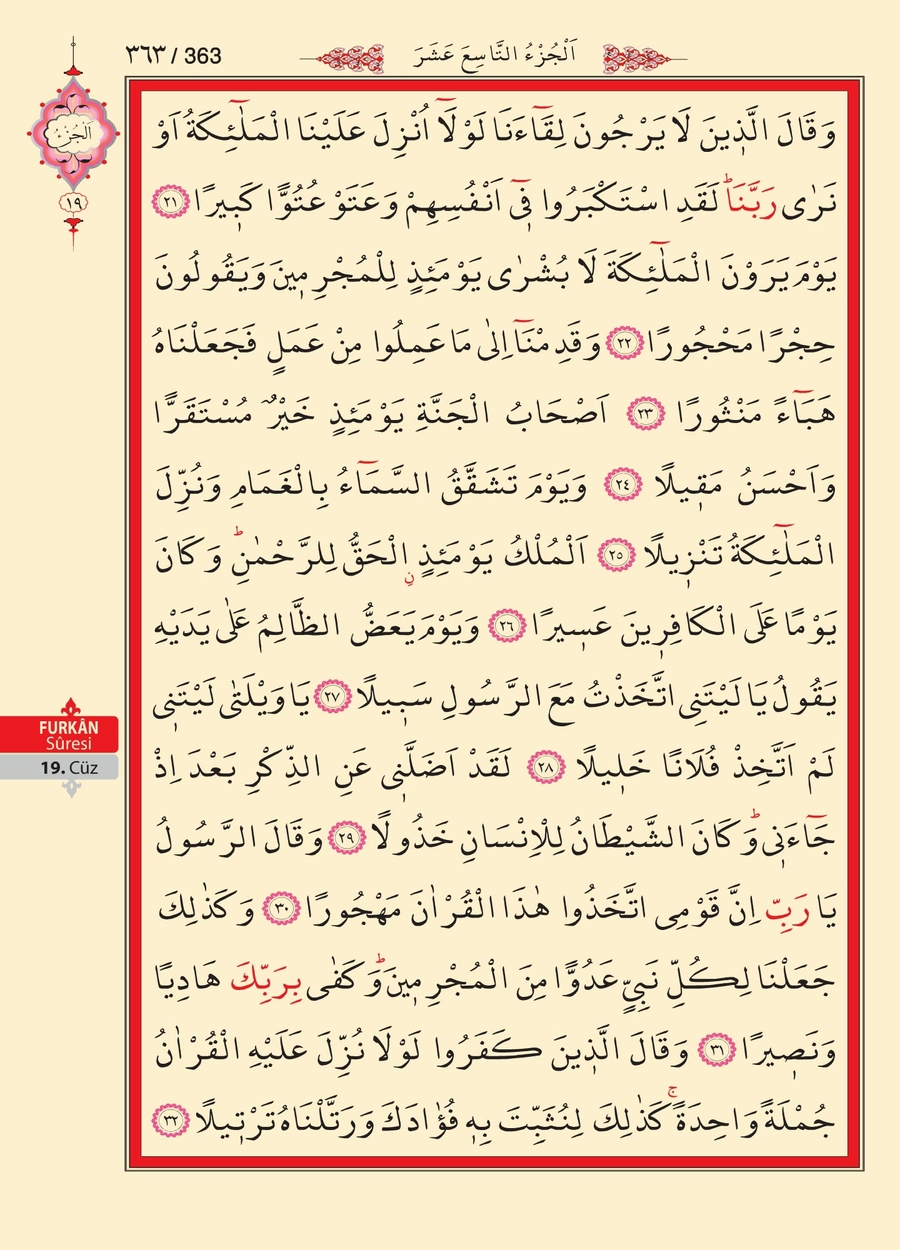 ٣٦٣ / 363
اَلْجُزْءُ التَّاسِعَ عَشَرَ
اَلْجُزْءُ
١٩
وَقَالَ الَّذ۪ينَ لَا يَرْجُونَ لِقَٓاءَنَا لَوْلَٓا اُنْزِلَ عَلَيْنَا الْمَلٰٓئِكَةُ اَوْ
نَرٰى رَبَّنَاۜ لَقَدِ اسْتَكْبَرُوا ف۪ٓي اَنْفُسِهِمْ وَعَتَوْ عُتُوًّا كَب۪يرًا ﴿٢١﴾
يَوْمَ يَرَوْنَ الْمَلٰٓئِكَةَ لَا بُشْرٰى يَوْمَئِذٍ لِلْمُجْرِم۪ينَ وَيَقُولُونَ
حِجْرًا مَحْجُورًا ﴿٢٢﴾ وَقَدِمْنَٓا اِلٰى مَا عَمِلُوا مِنْ عَمَلٍ فَجَعَلْنَاهُ
هَبَٓاءً مَنْثُورًا ﴿٢٣﴾ اَصْحَابُ الْجَنَّةِ يَوْمَئِذٍ خَيْرٌ مُسْتَقَرًّا
وَاَحْسَنُ مَق۪يلًا ﴿٢٤﴾ وَيَوْمَ تَشَقَّقُ السَّمَٓاءُ بِالْغَمَامِ وَنُزِّلَ
الْمَلٰٓئِكَةُ تَنْز۪يلًا ﴿٢٥﴾ اَلْمُلْكُ يَوْمَئِذٍۨ الْحَقُّ لِلرَّحْمٰنِۜ وَكَانَ
يَوْمًا عَلَى الْكَافِر۪ينَ عَس۪يرًا ﴿٢٦﴾ وَيَوْمَ يَعَضُّ الظَّالِمُ عَلٰى يَدَيْهِ
يَقُولُ يَا لَيْتَنِي اتَّخَذْتُ مَعَ الرَّسُولِ سَب۪يلًا ﴿٢٧﴾ يَا وَيْلَتٰى لَيْتَن۪ي
لَمْ اَتَّخِذْ فُلَانًا خَل۪يلًا ﴿٢٨﴾ لَقَدْ اَضَلَّن۪ي عَنِ الذِّكْرِ بَعْدَ اِذْ
جَٓاءَن۪يۜ وَكَانَ الشَّيْطَانُ لِلْاِنْسَانِ خَذُولًا ﴿٢٩﴾ وَقَالَ الرَّسُولُ
يَا رَبِّ اِنَّ قَوْمِي اتَّخَذُوا هٰذَا الْقُرْاٰنَ مَهْجُورًا ﴿٣٠﴾ وَكَذٰلِكَ
جَعَلْنَا لِكُلِّ نَبِيٍّ عَدُوًّا مِنَ الْمُجْرِم۪ينَۜ وَكَفٰى بِرَبِّكَ هَادِيًا
وَنَص۪يرًا ﴿٣١﴾ وَقَالَ الَّذ۪ينَ كَفَرُوا لَوْلَا نُزِّلَ عَلَيْهِ الْقُرْاٰنُ
جُمْلَةً وَاحِدَةًۚ كَذٰلِكَ لِنُثَبِّتَ بِه۪ فُؤٰادَكَ وَرَتَّلْنَاهُ تَرْت۪يلًا ﴿٣٢﴾
FURKÂN
Sûresi
19. Cüz